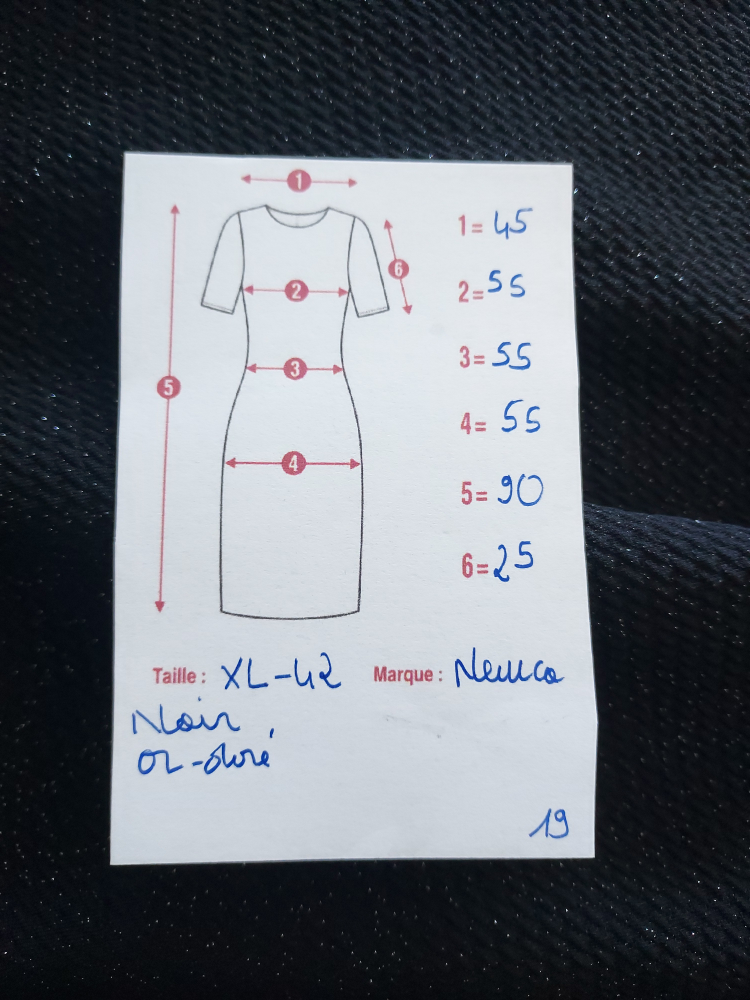 1
6
2
3
5
4
1= 45
2= 55
3= 55
4= 55
5= 90
6= 25
Taille : XL-42 Marque :
Noir
or-doré
19